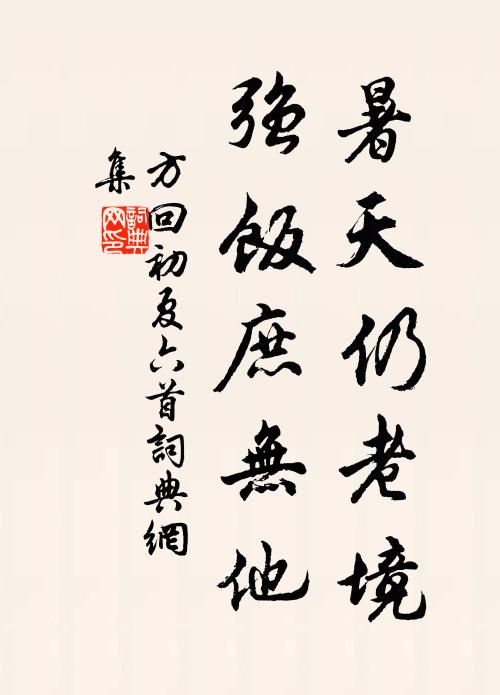 暑天仍老境
強飯庶無他
方回初夏六首詞典網
集
詞典网印